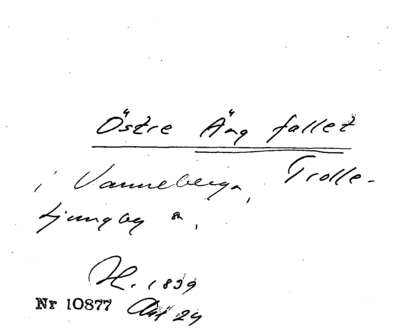 Östre Äng fallet
i Vanneberga, Trolle-
Ljungby sn,
H. 1839
Nr 10877 Akt 24